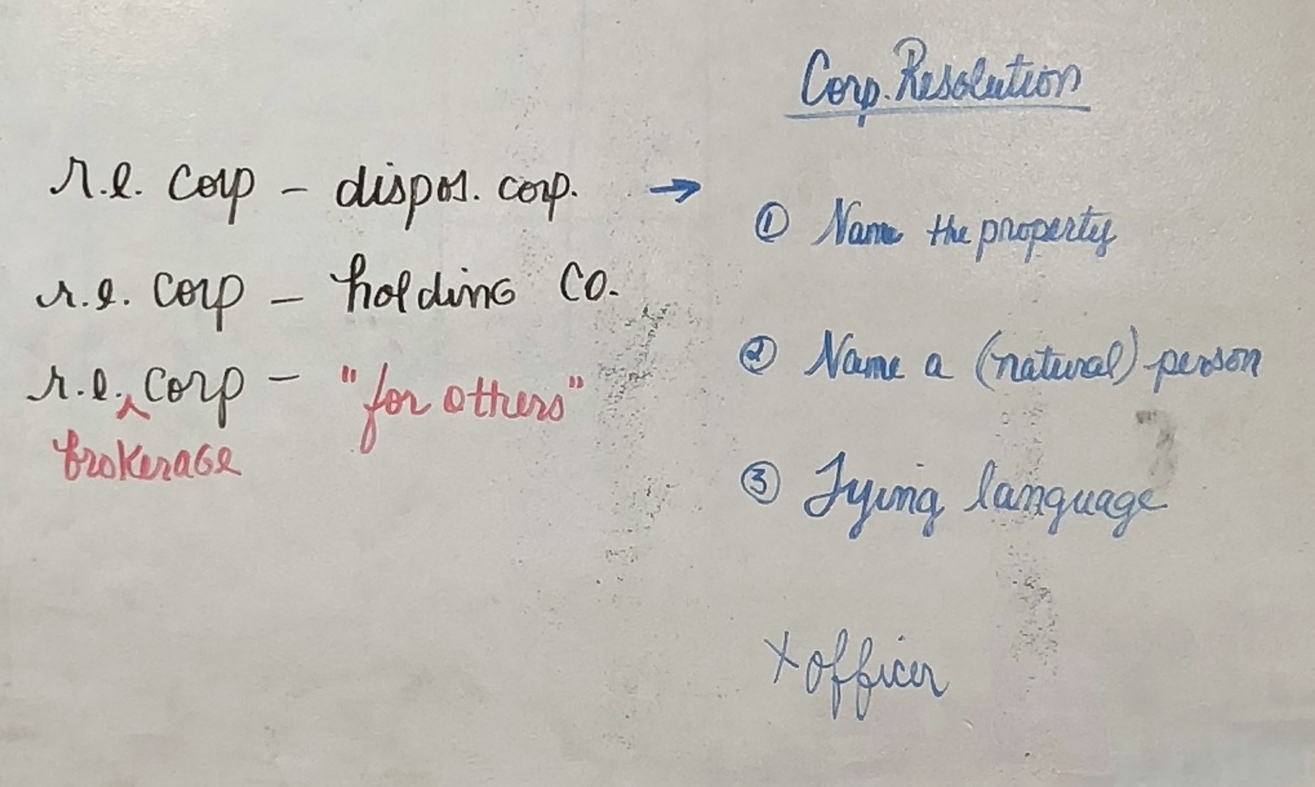 Corp. Resolution
r.e. corp - dispos. corp. →
r.e. corp - holding co.
r.e. ^ corp - "for others"
brokerage
① Name the property
② Name a (natural) person
③ Tying language
x officer